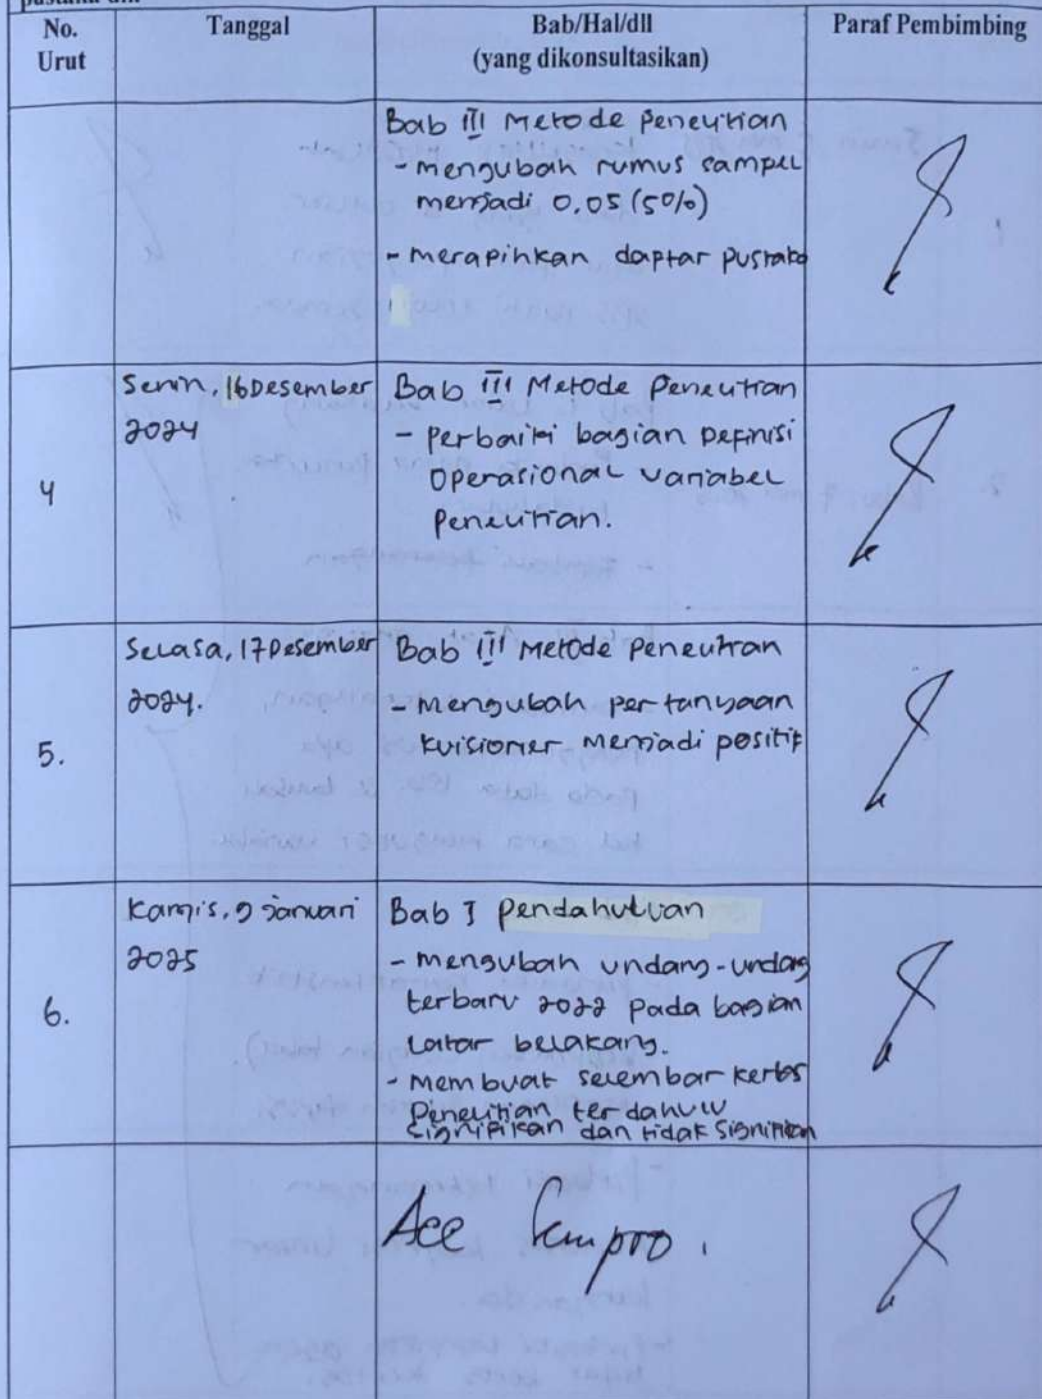 No.
Urut
Tanggal
Bab/Hal/dll
(yang dikonsultasikan)
Paraf Pembimbing
Bab III Metode Penelitian
- mengubah rumus sampel
menjadi 0.05 (5%)
- merapihkan daptar pustaka
4
Senin, 16 Desember
2024
Bab III Metode Penelitian
- perbaiki bagian Definisi
Operasional Variabel
Penelitian.
5.
Selasa, 17 Desember
2024.
Bab III Metode Penelitian
- Mengubah pertanyaan
kuisioner menjadi positif
6.
Kamis, 9 Januari
2025
Bab I Pendahuluan
- mengubah undang-undang
terbaru 2022 pada bagian
Latar belakang.
- Membuat selembar kertas
Penelitian terdahulu
signifikan dan tidak signifikan
Acc Sempro.